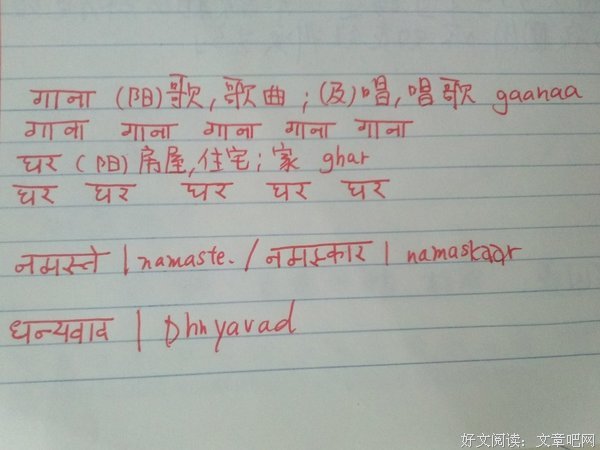 गाना (阳)歌,歌曲;(及)唱,唱歌 gaanaa
गाना गाना गाना गाना गाना
घर (阳)房屋,住宅;家 ghar
घर घर घर घर घर
नमस्ते | namaste. / नमस्कार | namaskaar
धन्यवाद | Dhnyavad
好文阅读:文章吧网